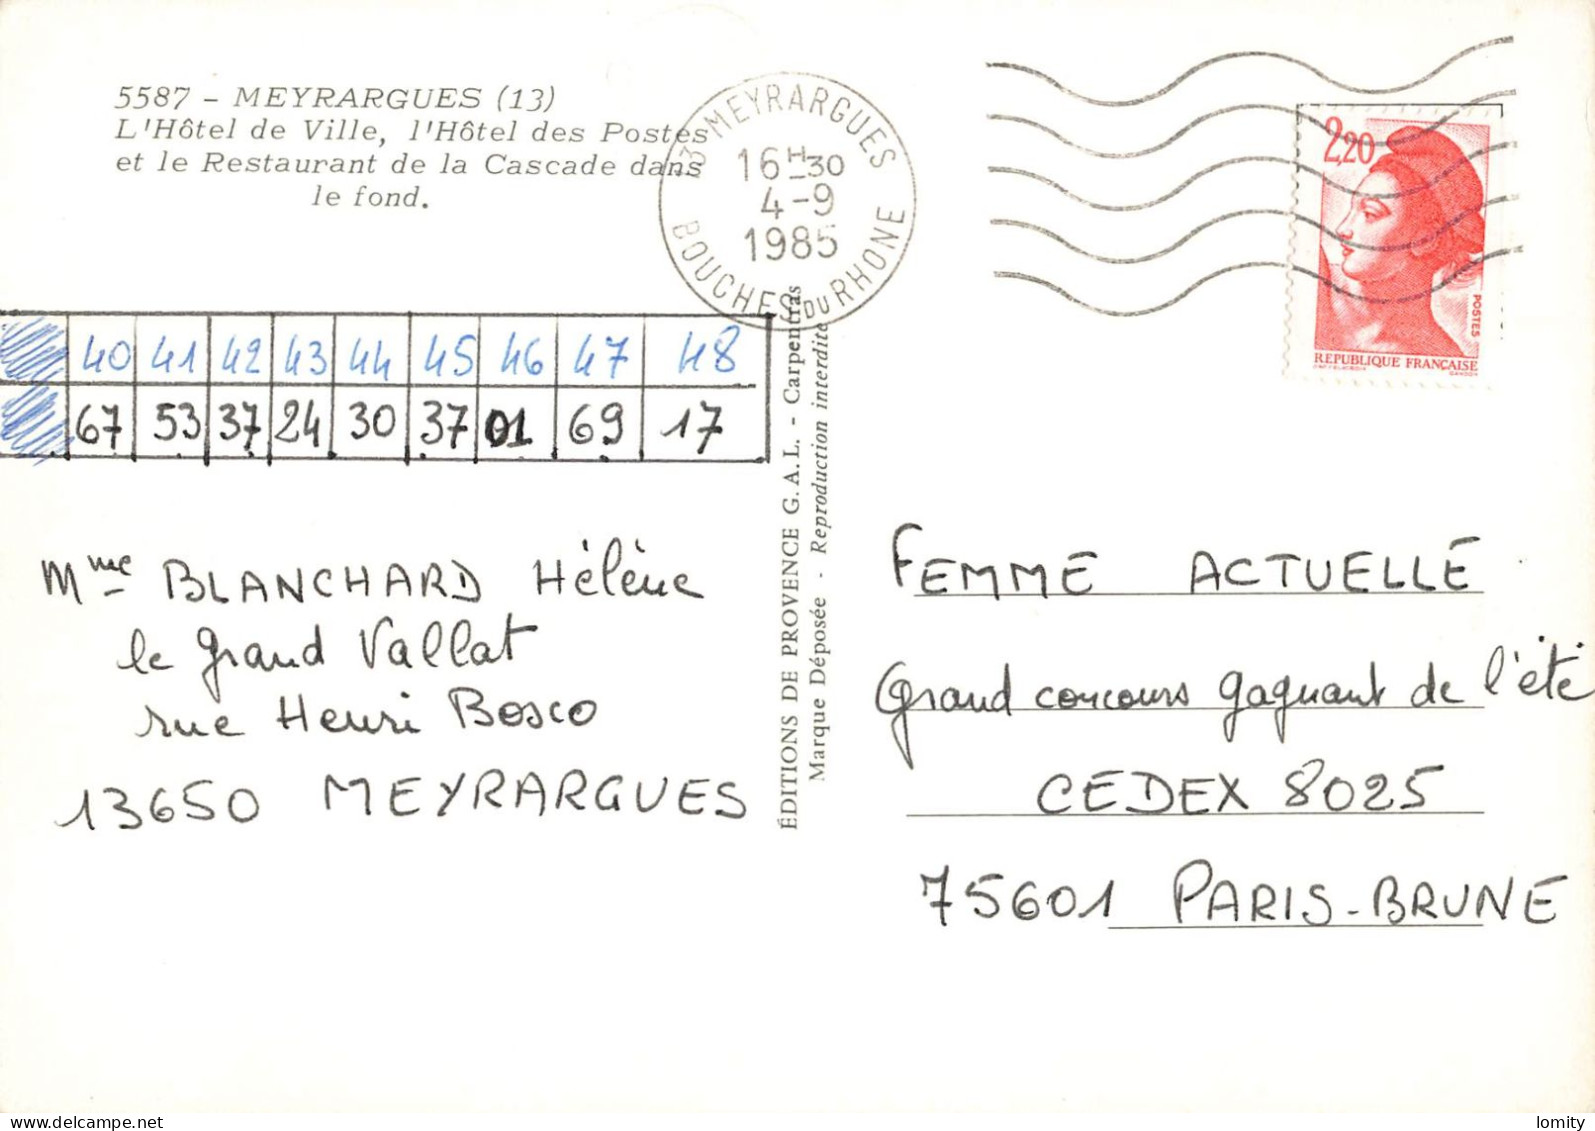 5587 - MEYRARGUES (13)
L'Hôtel de Ville, l'Hôtel des Postes
et le Restaurant de la Cascade dans
le fond.
13 MEYRARGUES
16H30
4-9
1985
BOUCHES DU RHONE
2,20
POSTES
REPUBLIQUE FRANÇAISE
40 41 42 43 44 45 46 47 48
67 53 37 24 30 37 01 69 17
Mme BLANCHARD Hélène
le grand Vallat
rue Henri Bosco
13650 MEYRARGUES
ÉDITIONS DE PROVENCE G.A.L. - Carpentras
Marque Déposée - Reproduction interdite
FEMME ACTUELLE
Grand concours gagnant de l'été
CEDEX 8025
75601 PARIS-BRUNE
delcampe.net
lomity